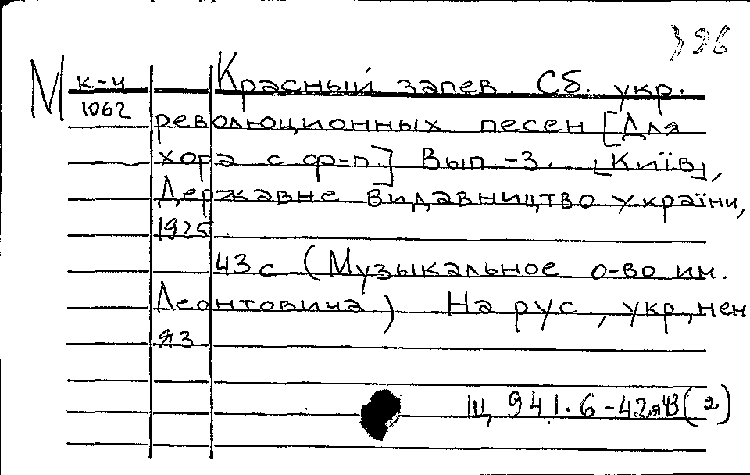 396
М к-ч Красный запев. Сб. укр.
1062 революционных песен [Для
хора с ф-п.] Вып-3. [Київ],
Державне видавництво України,
1925
43 с (Музыкальное о-во им.
Леонтовича) На рус, укр, нем
яз
Щ 941.6-42я43(2)